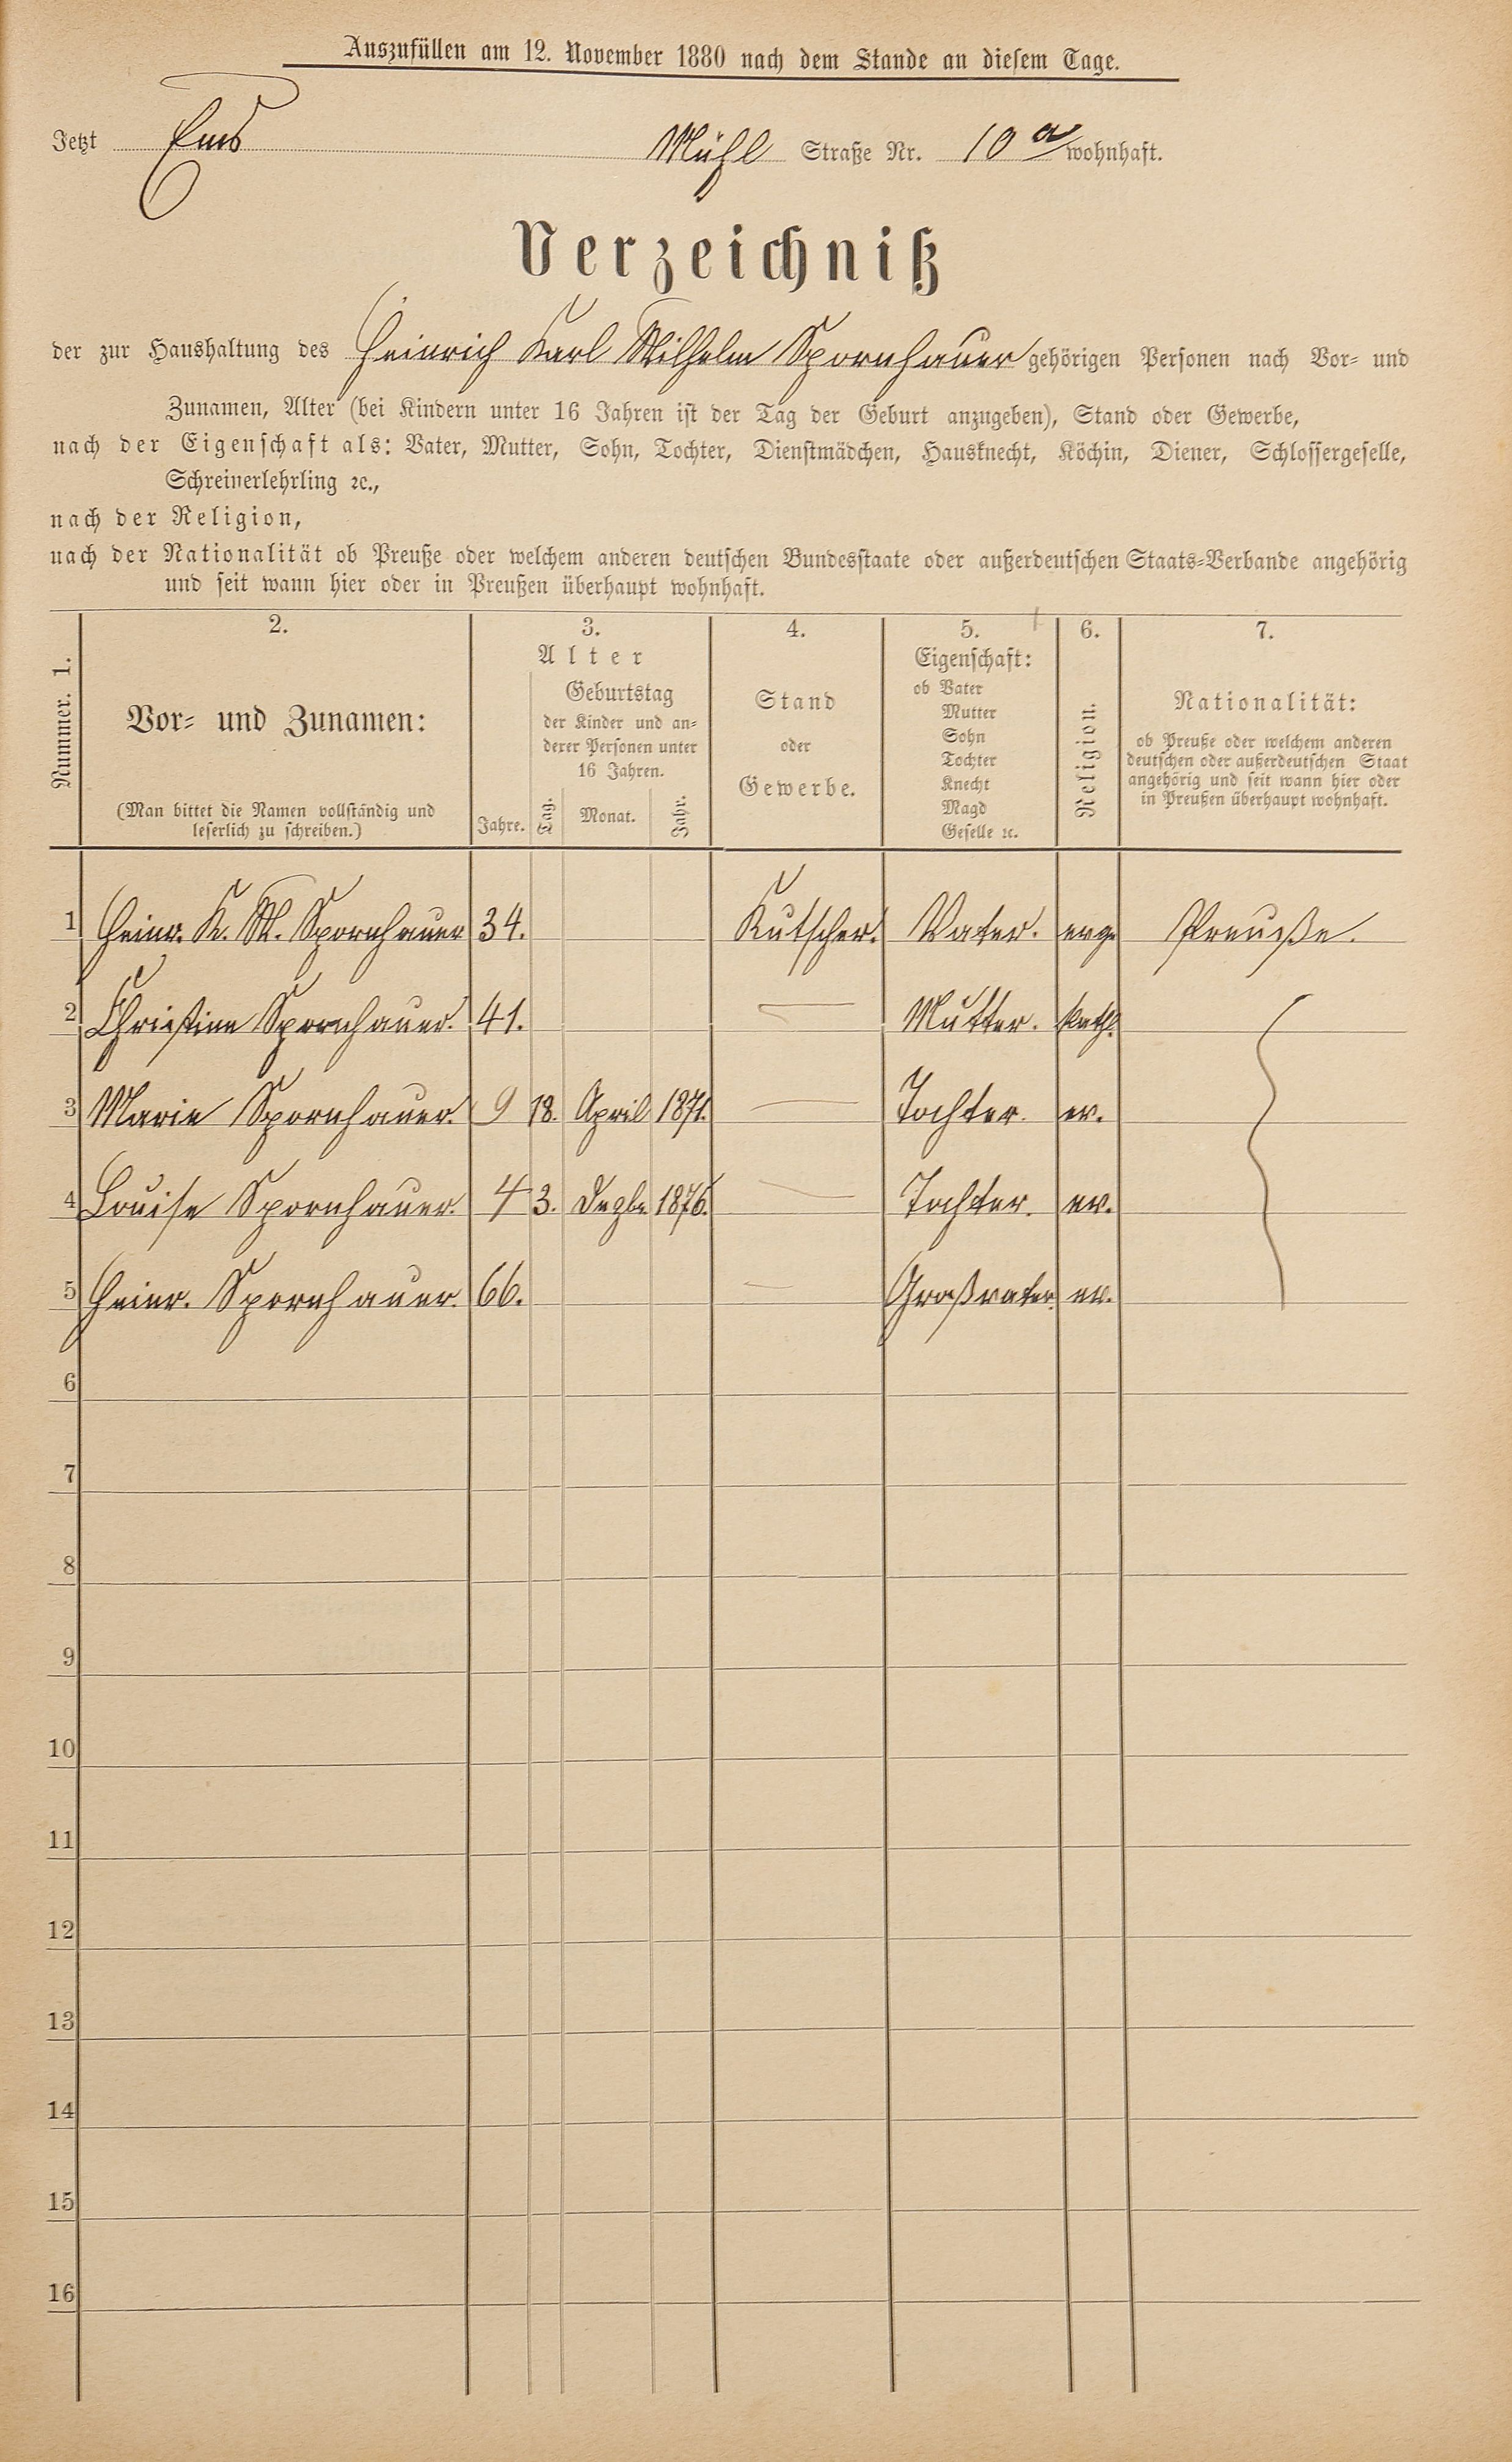 Auszufüllen am 12. November 1880 nach dem Stande an diesem Tage.
Jetzt Ems Mühl Straße Nr. 10 a wohnhaft.
Verzeichniß
der zur Haushaltung des Heinrich Karl Wilhelm Spornhauer gehörigen Personen nach Vor- und
Zunamen, Alter (bei Kindern unter 16 Jahren ist der Tag der Geburt anzugeben), Stand oder Gewerbe,
nach der Eigenschaft als: Vater, Mutter, Sohn, Tochter, Dienstmädchen, Hausknecht, Köchin, Diener, Schlossergeselle,
Schreinerlehrling ꝛc.,
nach der Religion,
nach der Nationalität ob Preuße oder welchem anderen deutschen Bundesstaate oder außerdeutschen Staats-Verbande angehörig
und seit wann hier oder in Preußen überhaupt wohnhaft.
Nummer. 1.
2.
Vor- und Zunamen:
(Man bittet die Namen vollständig und
leserlich zu schreiben.)
3.
Alter
Jahre.
Geburtstag
der Kinder und an-
derer Personen unter
16 Jahren.
Tag. Monat. Jahr.
4.
Stand
oder
Gewerbe.
5.
Eigenschaft:
ob Vater
Mutter
Sohn
Tochter
Knecht
Magd
Geselle ꝛc.
6.
Religion.
7.
Nationalität:
ob Preuße oder welchem anderen
deutschen oder außerdeutschen Staat
angehörig und seit wann hier oder
in Preußen überhaupt wohnhaft.
1 Heinr. K. W. Spornhauer 34. Kutscher. Vater. Preuße.
2 Christine Spornhauer. 41. Mutter. kath.
3 Marie Spornhauer. 9 18. April 1871. Tochter. ev.
4 Louise Spornhauer. 4 3. Dezbr. 1876. Tochter. ev.
5 Heinr. Spornhauer. 66. Großvater. ev.
6
7
8
9
10
11
12
13
14
15
16